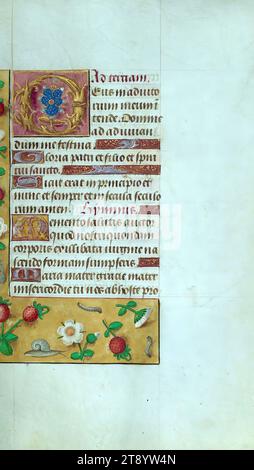 Ad tertiam.
Deus in adiuto
rium meum in
tende. Domine
ad adiuuan
dum me festina
Gloria patri et filio et spiri
tui sancto.
Sicut erat in principio et
nunc et semper et in secula seculo
rum amen. Hymnus.
Memento salutis auctor
quod nostri quondam
corporis ex illibata uirgine na
scendo formam sumpseris
Maria mater gracie mater
misericordie tu nos ab hoste pro
alamy
Image ID: 2T9YW4N
www.alamy.com